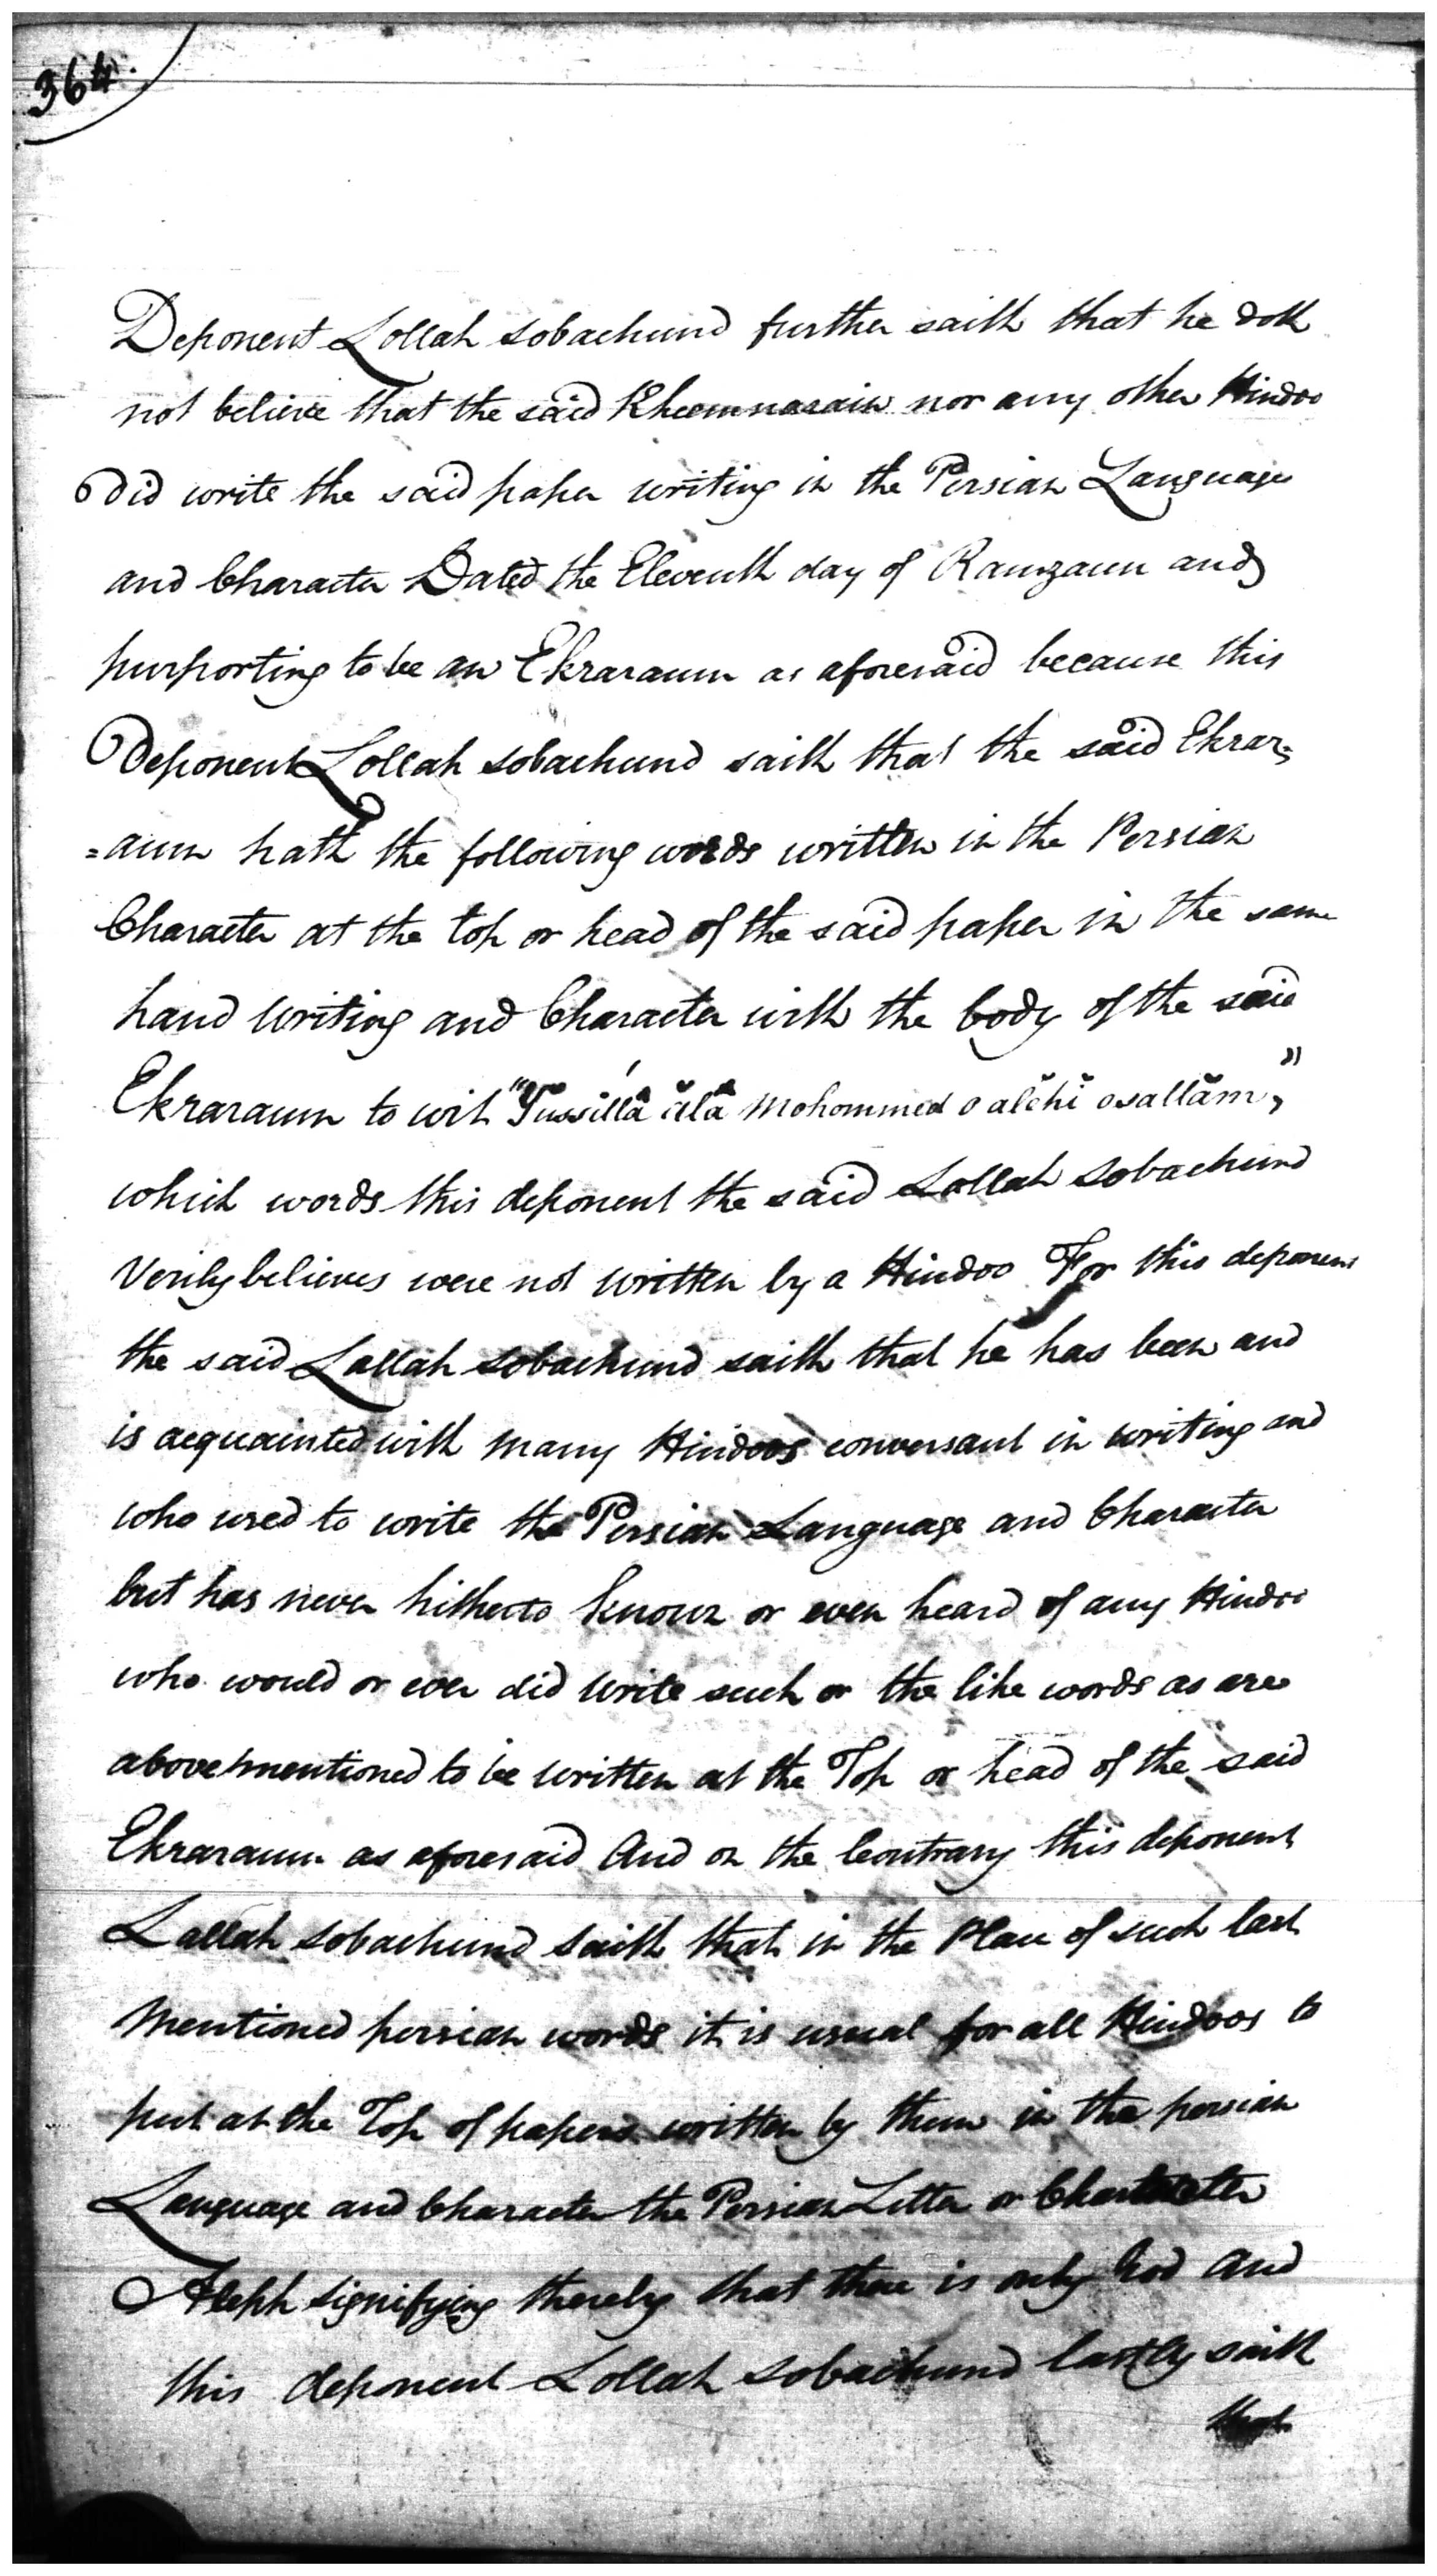 364.
Deponent Lollah Sobachund further saith that he doth
not believe that the said Kheemnarain nor any other Hindoo
did write the said paper writing in the Persian Language
and Character Dated the Eleventh day of Ramzaun and
purporting to be an Ekraraum as aforesaid because this
Deponent Lollah Sobachund saith that the said Ekrar,
=aum hath the following words written in the Persian
Character at the top or head of the said paper in the same
hand writing and Character with the body of the said
Ekraraum to wit " ălâ Mohommed o alĕhĭ osallăm,"
which words this deponent the said Lallah Sobachund
Verily believes were not written by a Hindoo For this deponent
the said Lallah Sobachund saith that he has been and
is acquainted with many Hindoos conversant in writing and
who used to write the Persian Language and Character
but has never hitherto known or even heard of any Hindoo
who would or ever did write such or the like words as are
abovementioned to be written at the Top or head of the said
Ekraraum as aforesaid And on the Contrary this deponent
Lallah Sobachund saith that in the Place of such last
Mentioned persian words it is usual for all Hindoos to
put at the Top of papers written by them in the persian
Language and Character the Persian Letter or Character
Aleph signifying thereby that there is only God And
this deponent Lollah Sobachund lastly saith
that